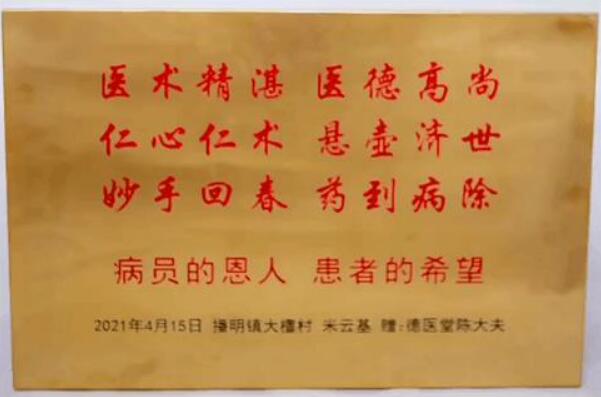 医术精湛 医德高尚
仁心仁术 悬壶济世
妙手回春 药到病除
病员的恩人 患者的希望
2021年4月15日 播明镇大槽村 米云基 赠:德医堂陈大夫